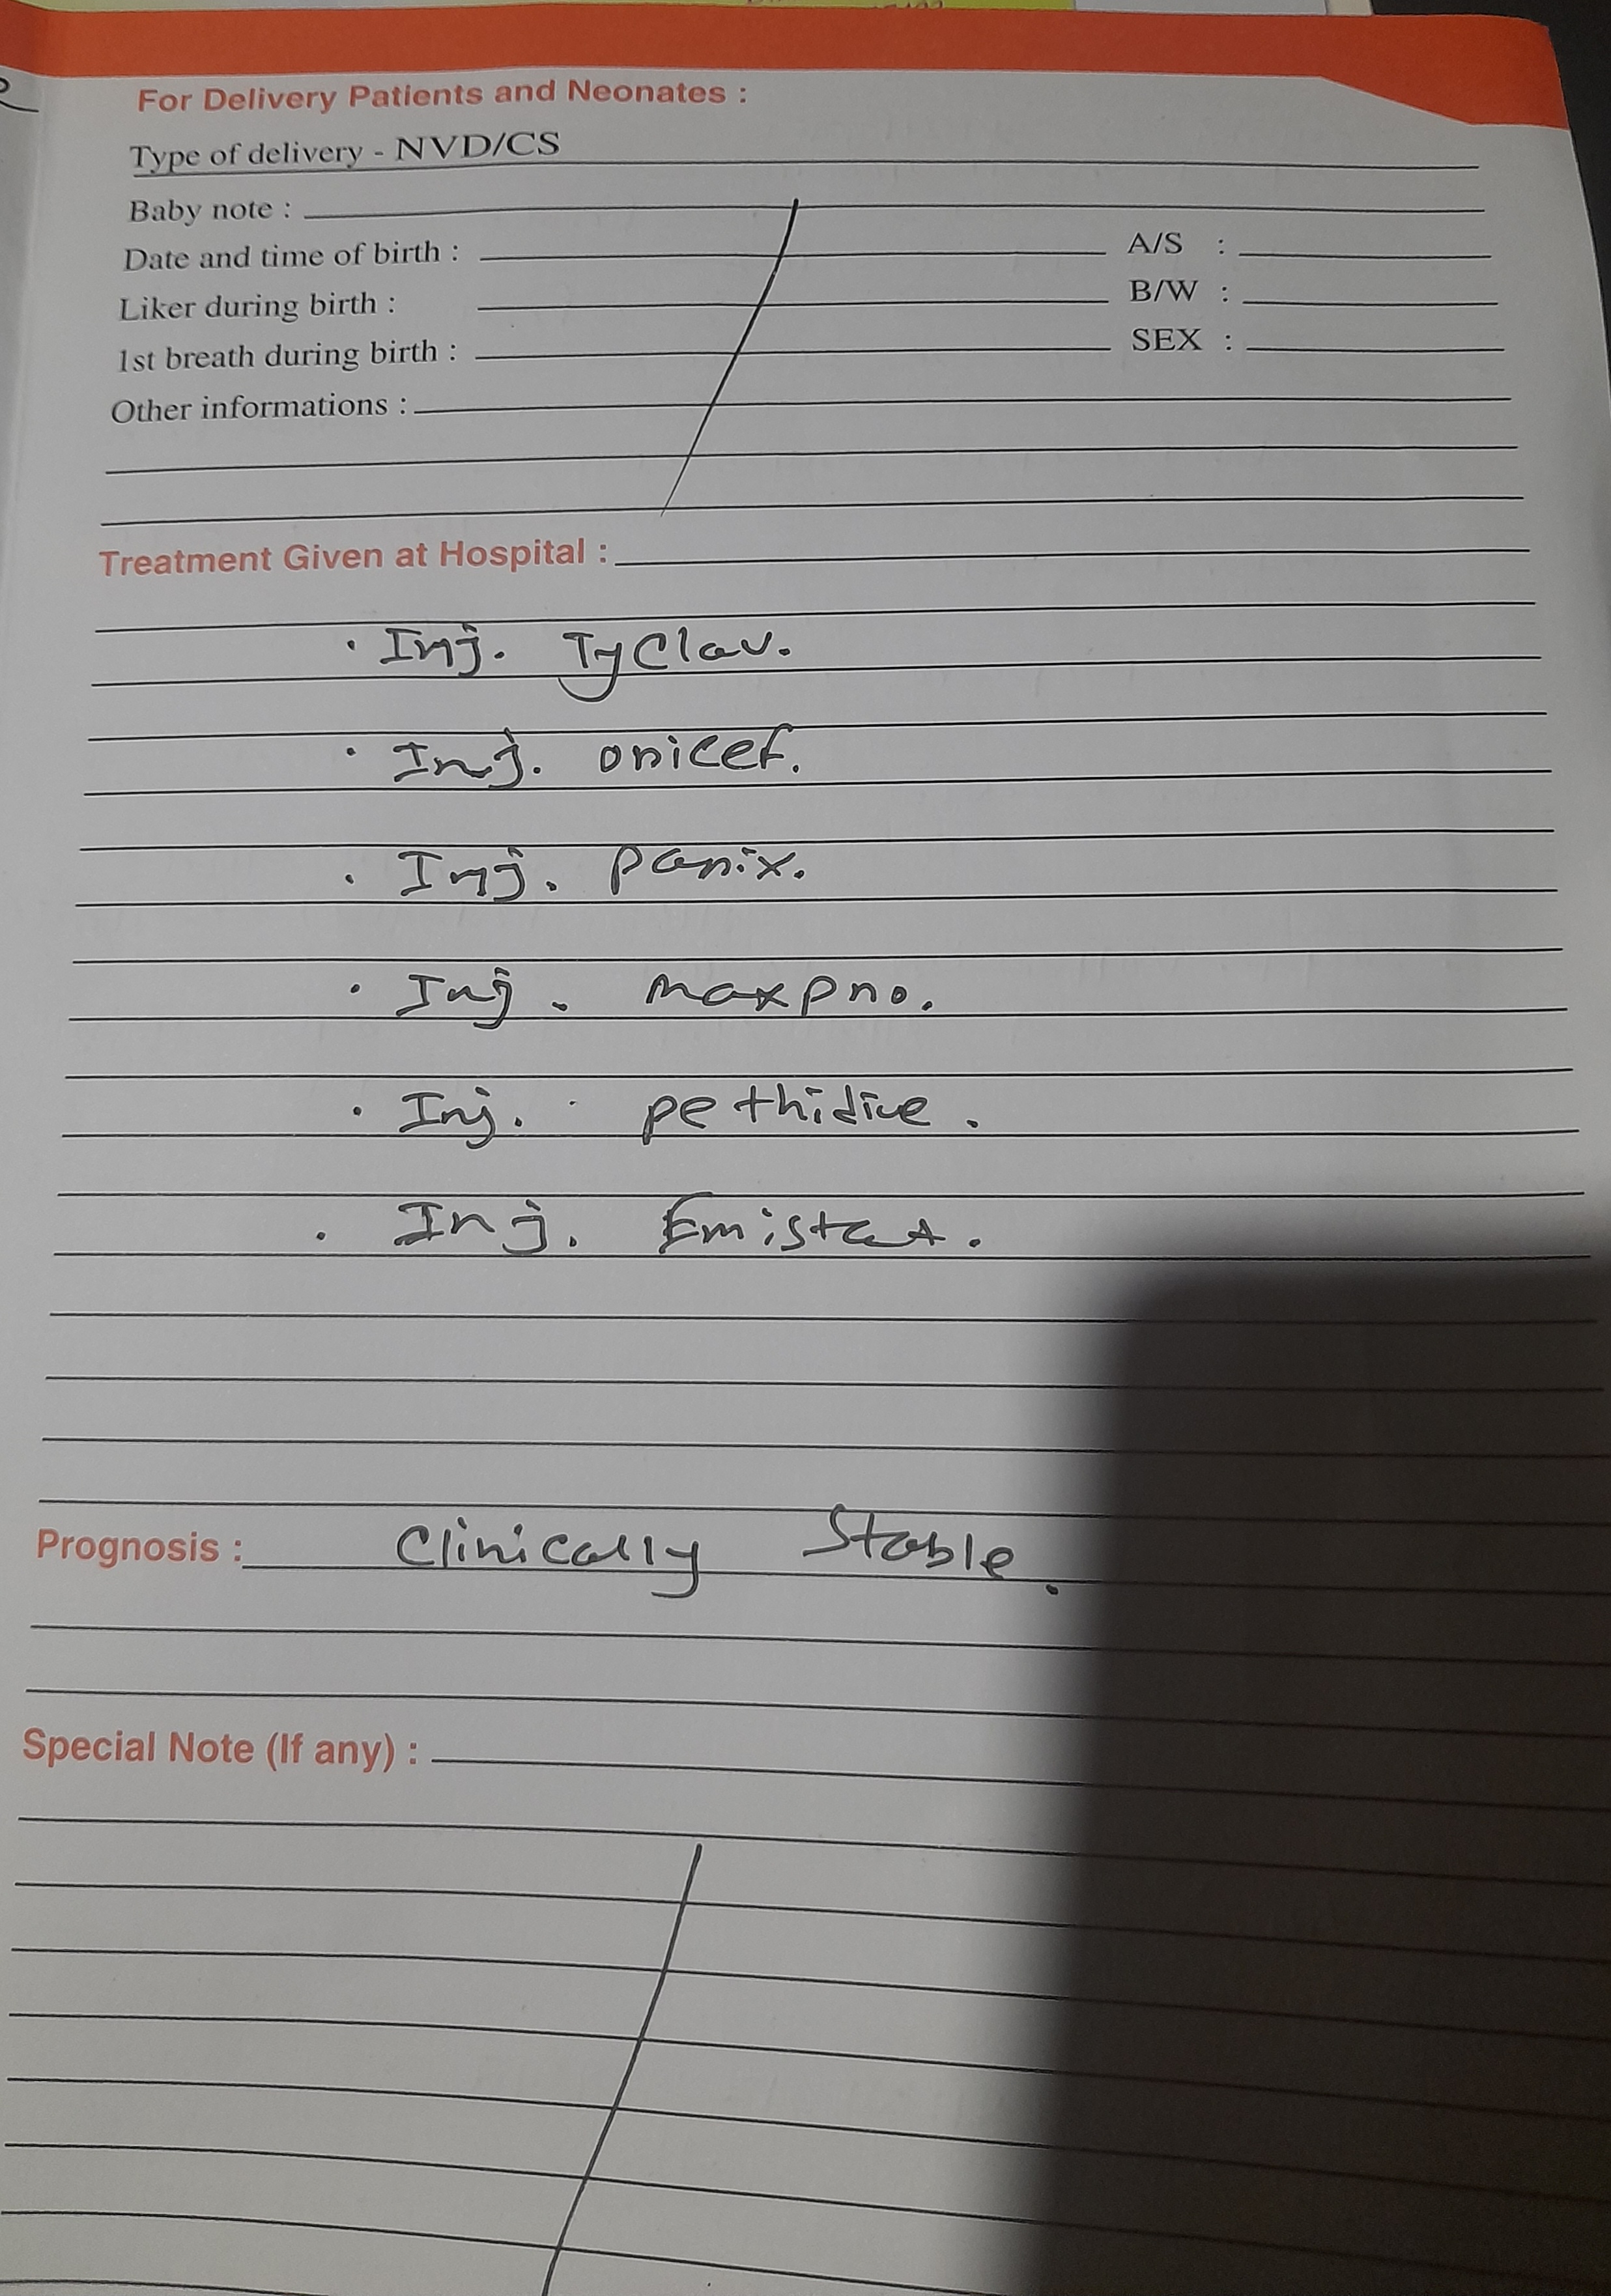 For Delivery Patients and Neonates :
Type of delivery - NVD/CS
Baby note :
Date and time of birth :
A/S :
Liker during birth :
B/W :
1st breath during birth :
SEX :
Other informations :
Treatment Given at Hospital :
. Inj. TyClav.
. Inj. onicef.
. Inj. panix.
. Inj. maxpno.
. Inj. pethidine.
. Inj. Emistat.
Prognosis : Clinically Stable.
Special Note (If any) :